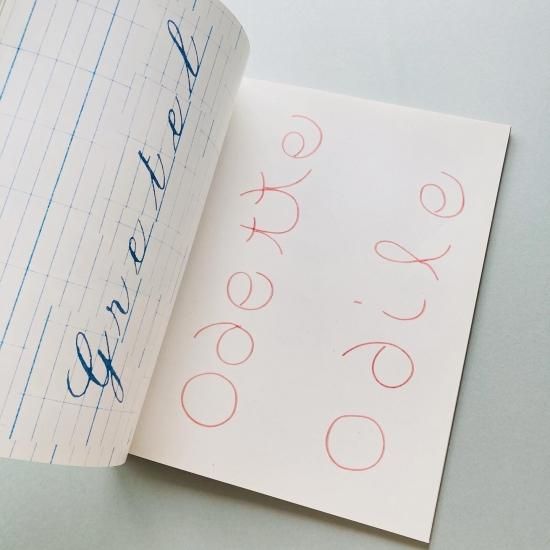 Gretel
Odette
Odile